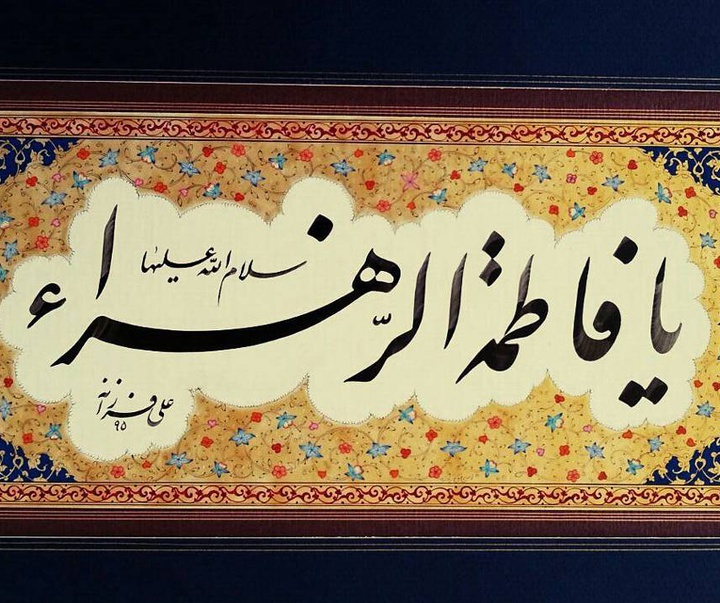 یا فاطمة الزهراء
سلام الله علیها
علی فرزانه
۹۵